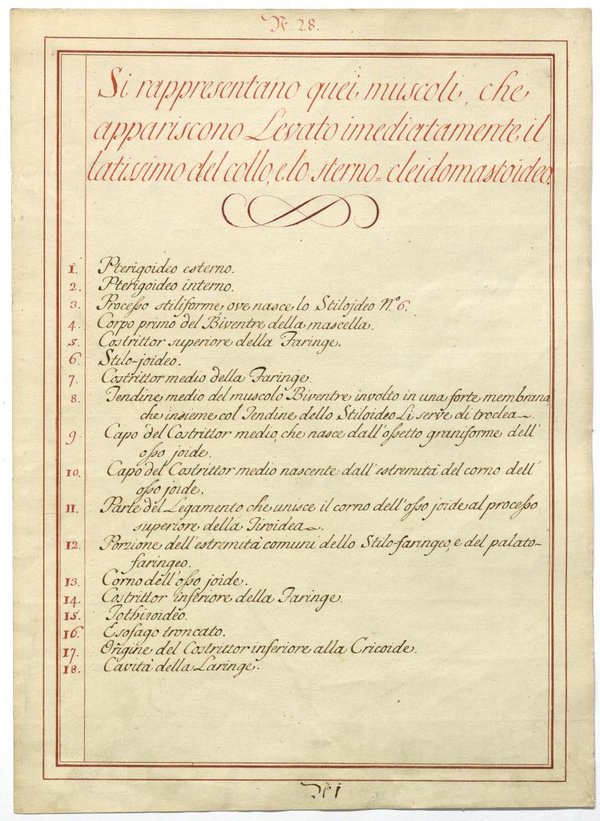 N. 28.
Si rappresentano quei muscoli, che
appariscono Levato imediatamente il
latissimo del collo, e lo sterno=cleidomastoideo.
1. Pterigoideo esterno.
2. Pterigoideo interno.
3. Processo stiliforme, ove nasce lo Stilojdeo N.º 6.
4. Corpo primo del Biventre della mascella.
5. Costrittor superiore della Faringe.
6. Stilo-joideo.
7. Costrittor medio della Faringe.
8. Tendine medio del muscolo Biventre involto in una forte membrana,
che insieme col Tendine dello Stiloideo Li serve di troclea.
9. Capo del Costrittor medio, che nasce dall'ossetto graniforme dell'
osso joide.
10. Capo del Costrittor medio nascente dall'estremità del corno dell'
osso joide.
11. Parte del Legamento che unisce il corno dell'osso joide al processo
superiore della Tiroidea.
12. Porzione dell'estremità comuni dello Stilo-faringeo, e del palato-
faringeo.
13. Corno dell'osso joide.
14. Costrittor inferiore della Faringe.
15. Jothiroideo.
16. Esofago troncato.
17. Origine del Costrittor inferiore alla Cricoide.
18. Cavità della Laringe.
N. 1